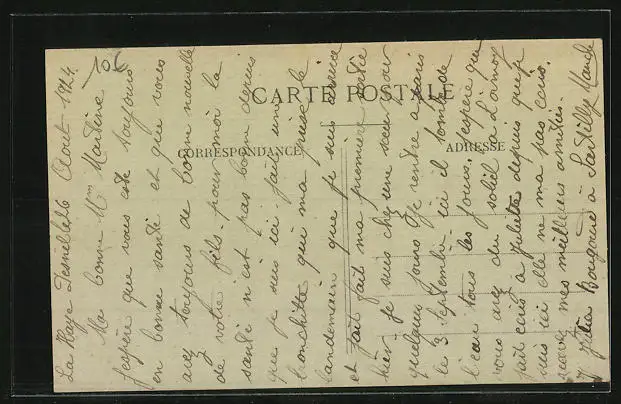 10 €
CARTE POSTALE
CORRESPONDANCE
ADRESSE
La Haye Desnellele Août 1924
Ma bonne Mme Martine
j'espère que vous ete toujours
en bonne santé et que vous
avez toujours de bonne nouvelle
de votre fils. pour moi la
santé n'est pas bonne depuis
que je suis ici j'ai fait une
bronchitte qui m'a prise le
landemain que je suis arrivée
et fait fait ma première sortie
hier je suis chez une sœur pour
quelques jours je rentre a paris
le 3 septembre. ici il tombe de
l'eau tous les jours. j'espère que
vous avez du soleil a Lamoy
j'ait ecris a Juliette depuis que je
suis ici elle ne ma pas ecris.
recevez mes meilleures amitiés.
J Julia Bougourd à Sartilly Manche